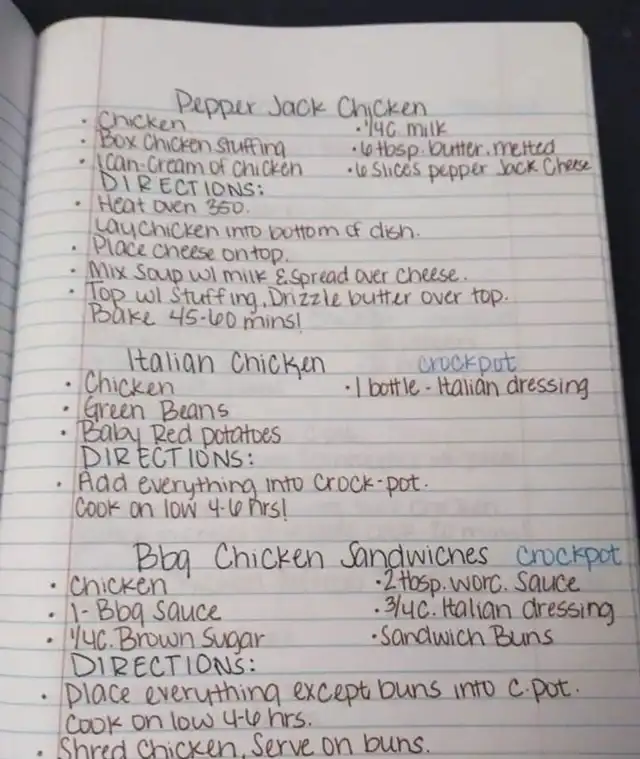 Pepper Jack Chicken
• Chicken • 1/4c. milk
• Box Chicken Stuffing • 6 tbsp. butter, melted
• 1 Can-Cream of chicken • 6 Slices pepper Jack Cheese
DIRECTIONS:
• Heat oven 350.
Lay chicken into bottom of dish.
• Place cheese on top.
• Mix Soup w/ milk & spread over cheese.
• Top w/ Stuffing, Drizzle butter over top.
Bake 45-60 mins!
Italian Chicken crockpot
• Chicken • 1 bottle - Italian dressing
• Green Beans
• Baby Red Potatoes
DIRECTIONS:
• Add everything into Crock-pot.
Cook on low 4-6 hrs!
Bbq Chicken Sandwiches crockpot
• Chicken • 2 tbsp. worc. Sauce
• 1- Bbq Sauce • 3/4c. Italian dressing
• 1/4c. Brown Sugar • Sandwich Buns
DIRECTIONS:
• Place everything except buns into C.pot.
Cook on low 4-6 hrs.
• Shred Chicken, Serve on buns.